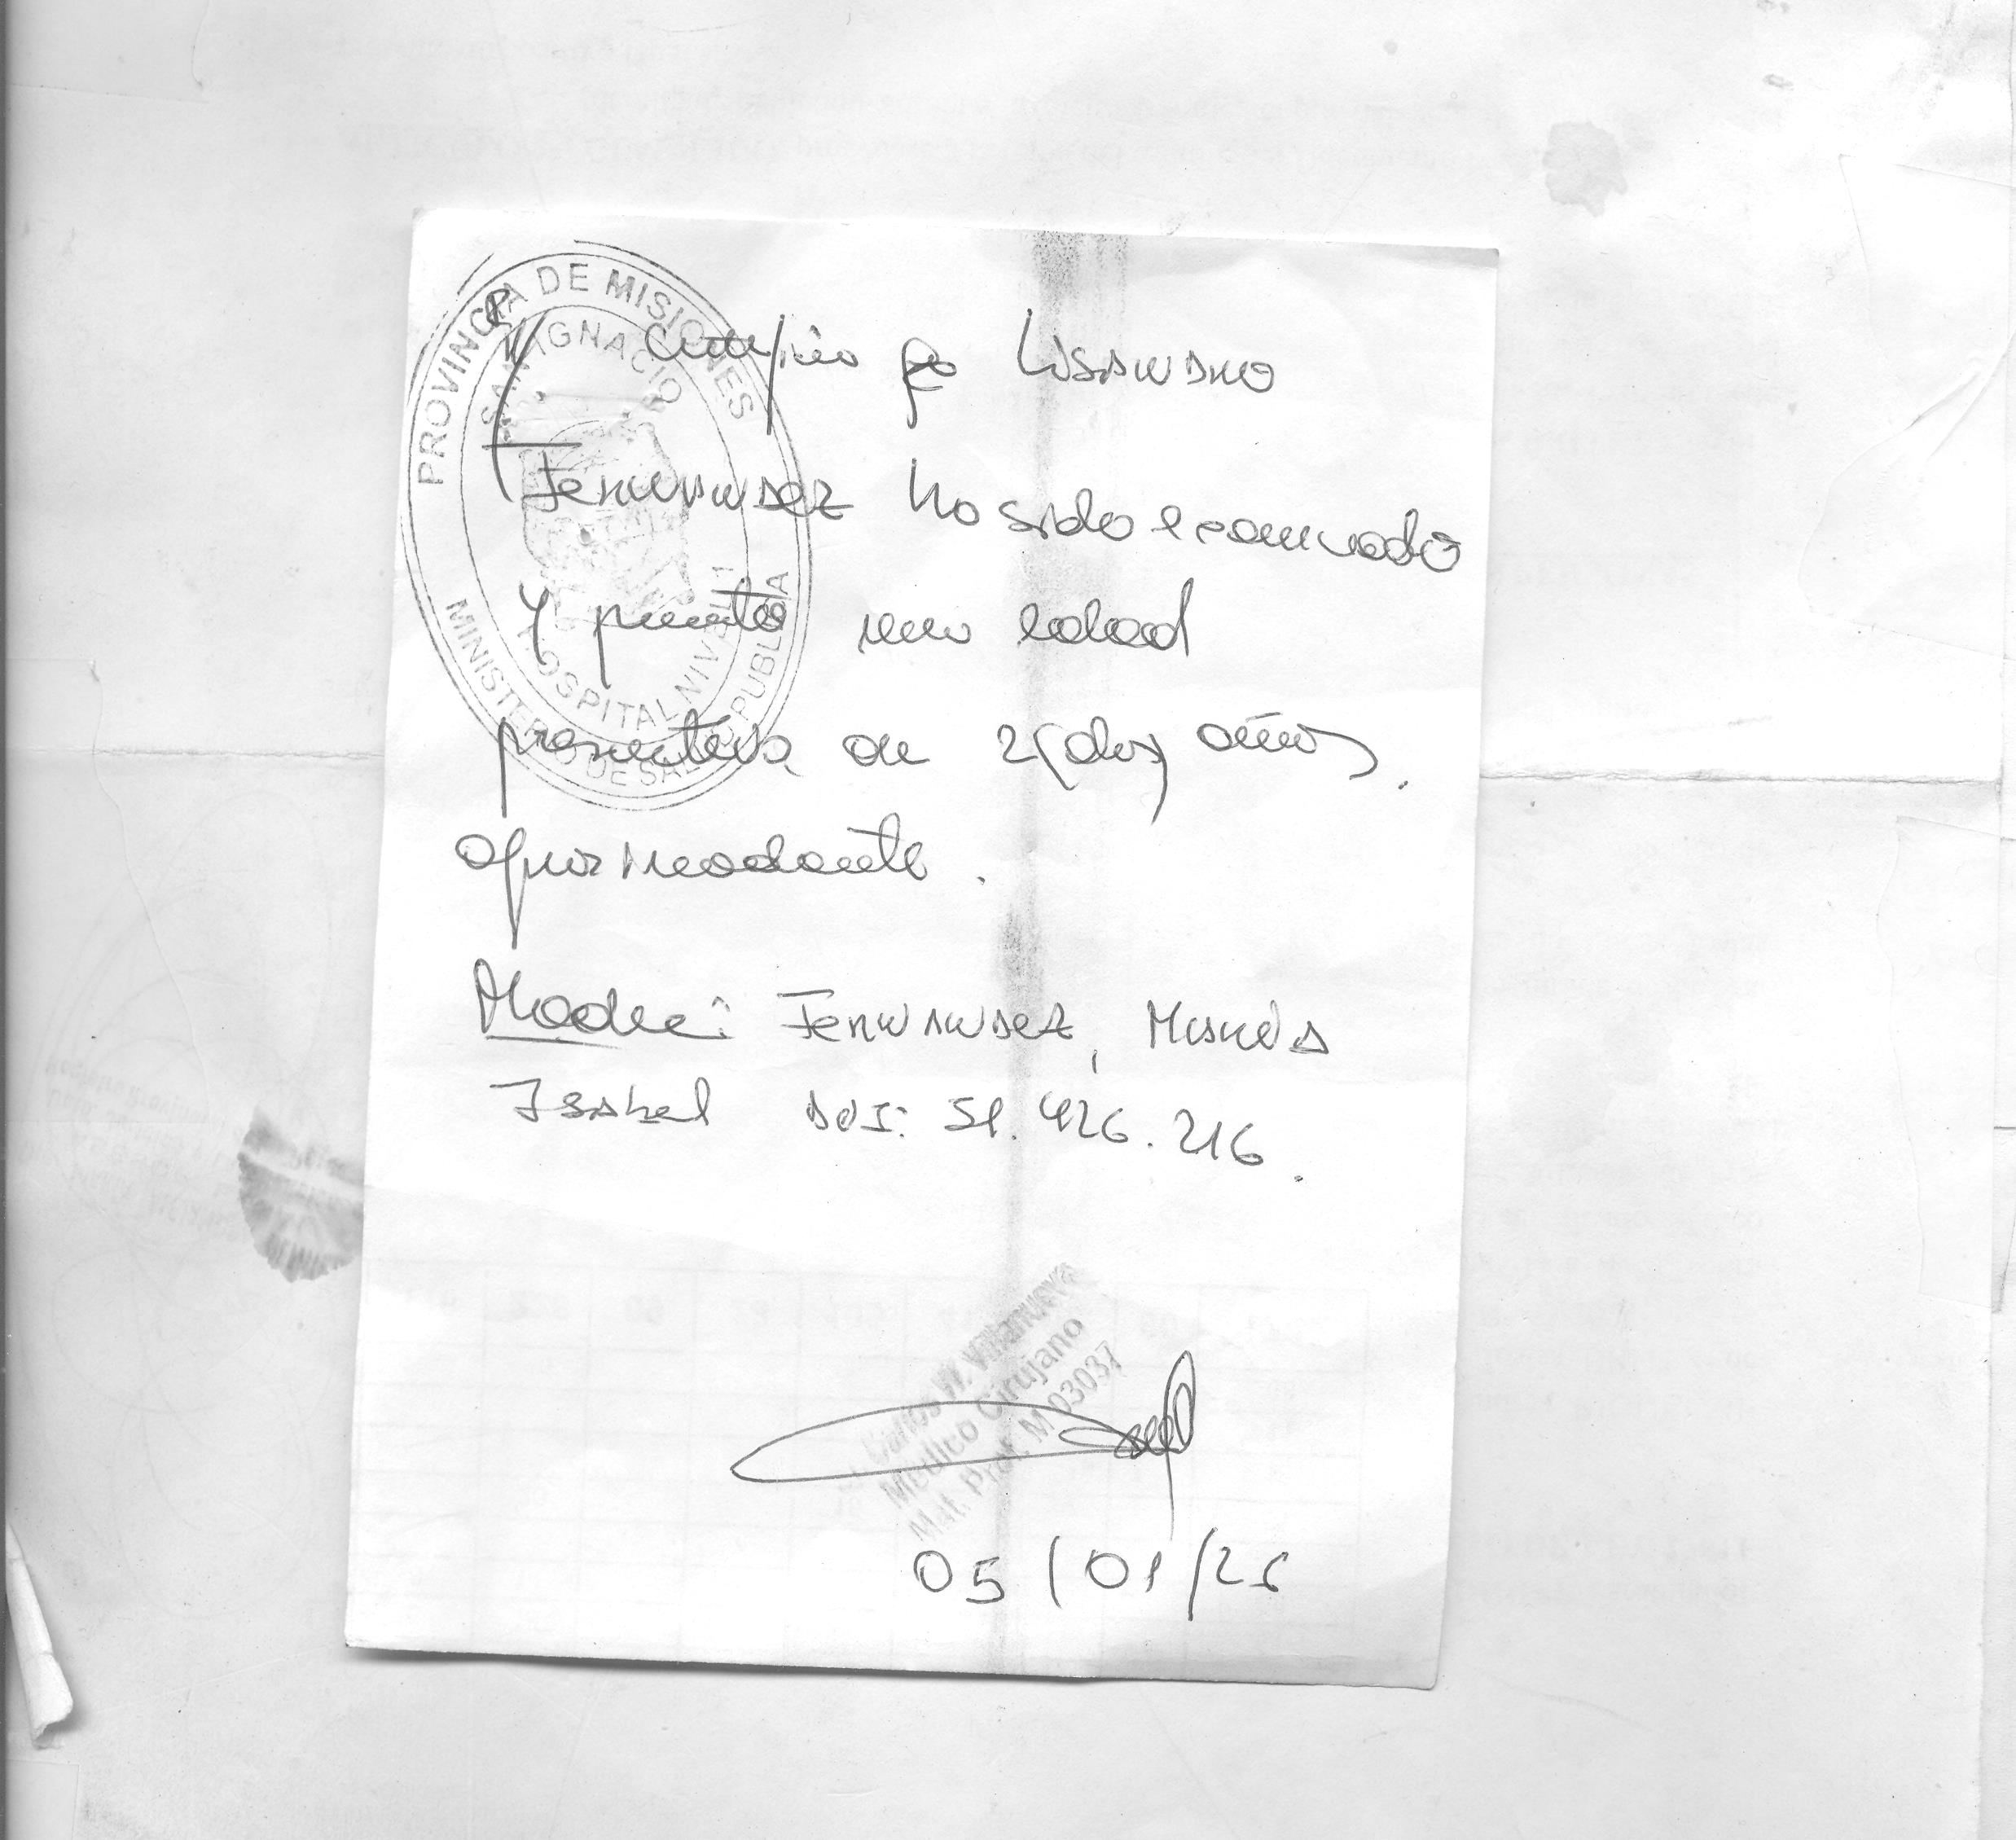 PROVINCIA DE MISIONES
SAN IGNACIO
HOSPITAL NIVEL
MINISTERIO DE SALUD PUBLICA
R/ Certifico q Lisandro
Fernandez ha sido examinado
y presenta una edad
presuntiva de 2(dos) años.
aproximadamente.
Madre: Fernandez, María
Isabel DNI: 51.426.216.
Carlos W. Villanueva
Medico Cirujano
Mat. Prof. M 03037
05/01/26